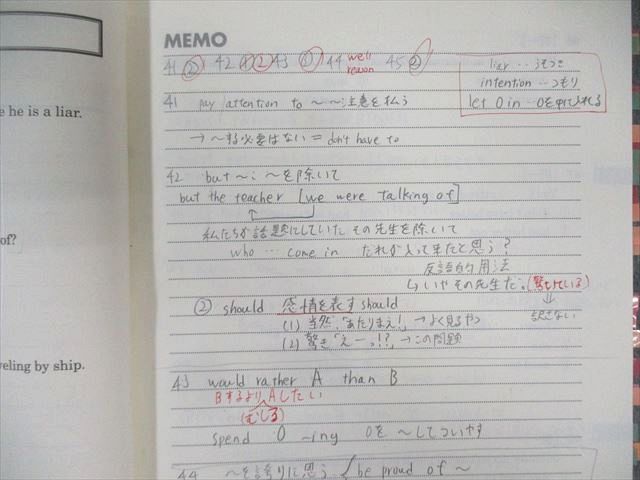 e he is a liar.
of?
veling by ship.
MEMO
41 ② 42 ①② 43 ① 44 well reason 45 ②
liar … うそつき
intention … つもり
let O in … Oを中に入れる
41 pay attention to ~ ~に注意を払う
→ ~する必要はない = don't have to
42 but ~ : ~を除いて
but the teacher [we were talking of]
私たちが話題にしていた その先生を除いて
who … come in だれが入って来たと思う?
反語的用法
いやその先生だ。(驚いている)
訳さない
② should 感情を表す should
(1) 当然 「あたりまえ!」 → よく見るやつ
(2) 驚き 「えーっ!?」 → この問題
43 would rather A than B
BするよりAしたい
(むしろ)
spend O ~ing Oを~してついやす
44 ~を誇りに思う be proud of ~